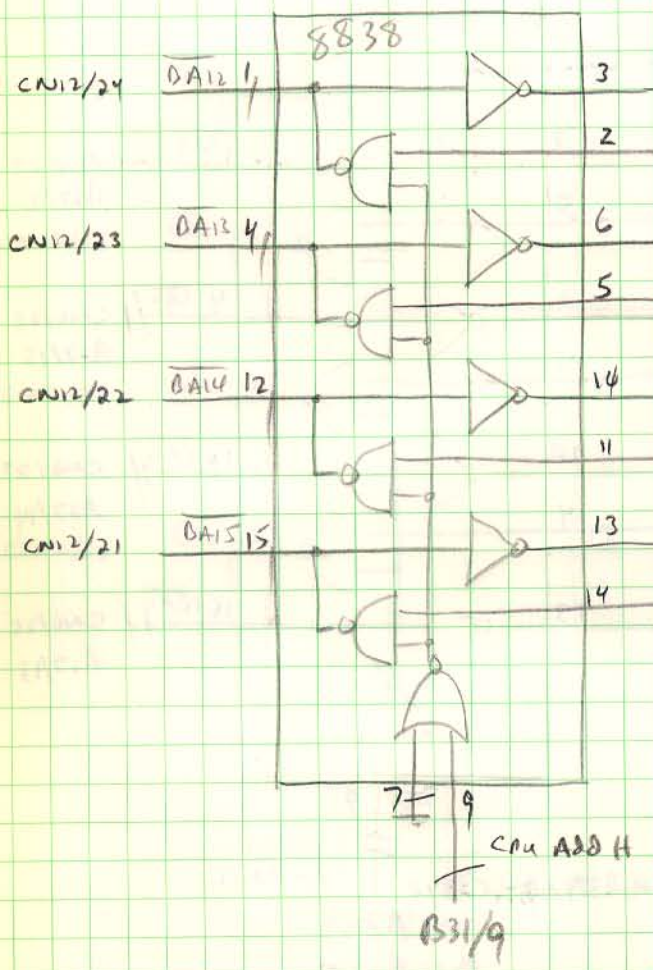 8838
CN12/24 B̅A̅1̅2̅ 1 3
2
CN12/23 B̅A̅1̅3̅ 4 6
5
CN12/22 B̅A̅1̅4̅ 12 14
11
CN12/21 B̅A̅1̅5̅ 15 13
14
7 9
CPU ADD H
B31/9